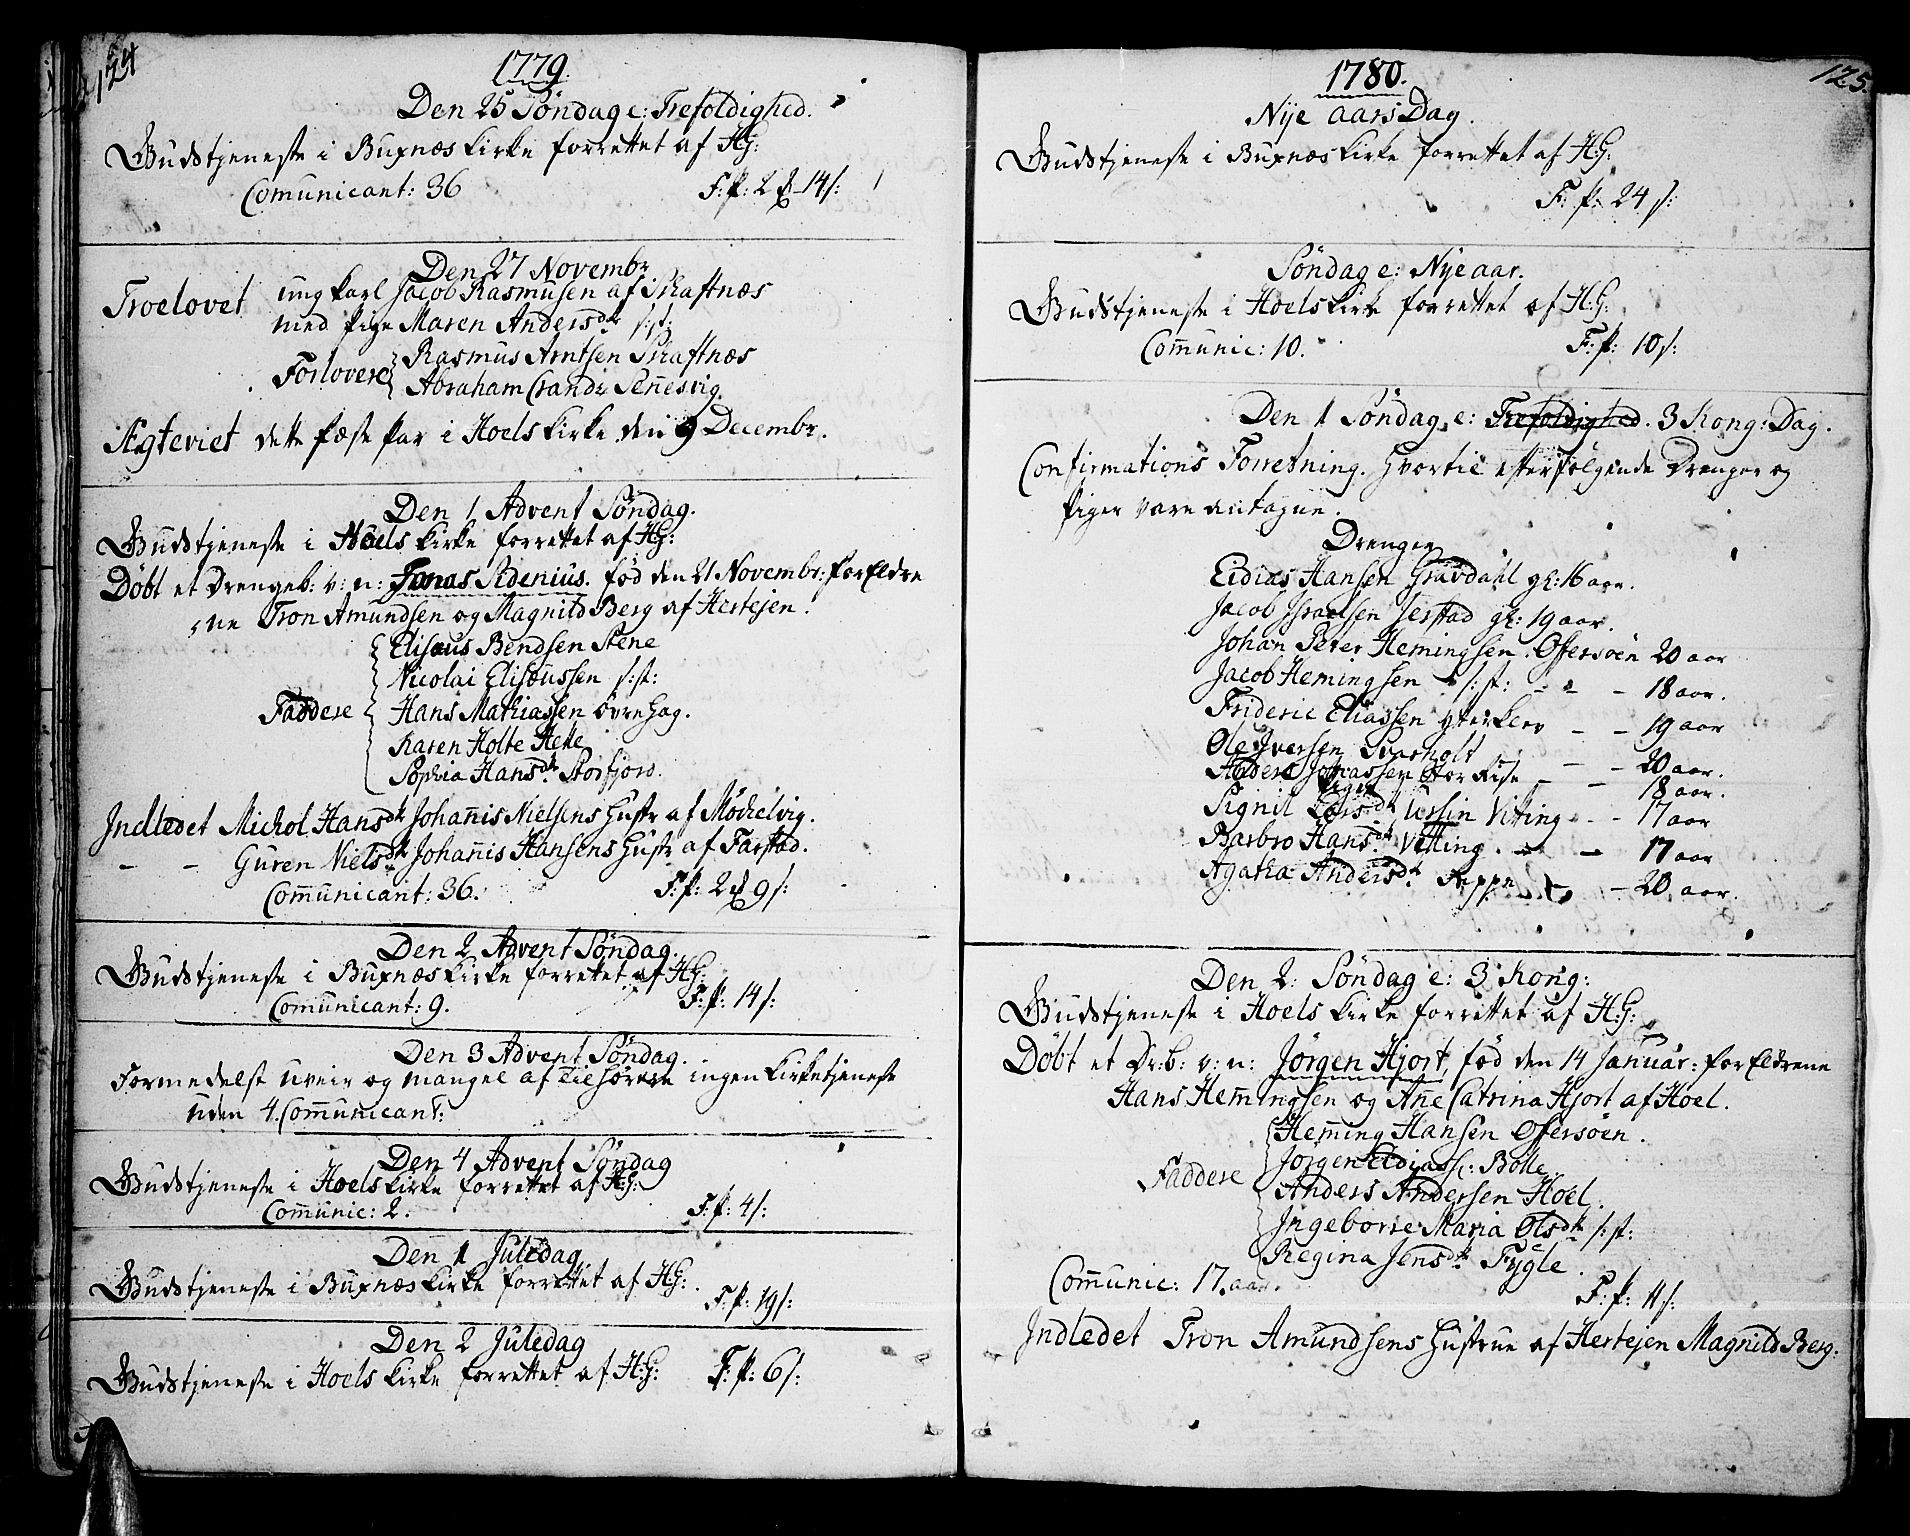 124
1779.
Den 25 Söndag e: Trefoldighed.
Gudstjeneste i Buxnæs Kirke forrettet af HG:
Comunicant: 36 F: p: 2 14 s:
Den 27 Novembr
Troelovet ung karl Jacob Rasmusen af Skaftnæs
med pige Maren Andersdr s: st:
Forlovere Rasmus Arntsen Skaftnæs
Abraham Crandz Sennesvig.
Ægteviet dette fæste par i Hoels Kirke den 9 Decembr.
Den 1 Advent Söndag.
Gudstjeneste i Hoels Kirke forrettet af HG:
Döbt et Drengeb: v: n: Jonas Sidenius. föd den 21 Novembr: forEldre
ne Tron Amundsen og Magnild Berg af Hertejen.
Elisæus Bendsen Stene
Nicolai Elisæussen s: st:
Faddere Hans Mathiassen övre Hag.
Karen Holte
Sophia Hansdr. Storfjord.
Indledet Michol Hansdr Johannis Nielsens Hustr af Möchelvig.
— — Guren Nielsdr Johannis Hansens Hustr af Farstad.
Communicant: 36. F: p: 2 9 s:
Den 2 Advent Söndag.
Gudstjeneste i Buxnæs Kirke forrettet af HG:
Comunicant: 9. F: p: 14 s:
Den 3 Advent Söndag.
Formedelst uveir og mangel af tilhörere ingen Kirketjeneste
uden 4. Communicant:
Den 4 Advent Söndag
Gudstjeneste i Hoels Kirke forrettet af H:G:
Communic: 2. F: p: 4 s:
Den 1 Juledag
Gudstjeneste i Buxnæs Kirke forrettet af HG:
F: p: 19 s:
Den 2 Juledag
Gudstjeneste i Hoels Kirke forrettet af H:G: F: p: 6 s:
125.
1780.
Nye aars Dag.
Gudstjeneste i Buxnæs Kirke forrettet af H:G:
F: p: 24 s:
Söndag e: Nye aar.
Gudstjeneste i Hoels Kirke forrettet af H:G:
Communic: 10. F: p: 10 s:
Den 1 Söndag e: Trefoldighed. 3 Kong: Dag.
Confirmations Forretning. Hvortil efterfölgende Drenger og
Piger vare antagne.
Drenger
Eidias Hansen Gravdahl gl: 16 aar.
Jacob Israelsen Jerstad gl: 19 aar.
Johan Peter Hemingsen Offersöen 20 aar
Jacob Hemingsen s: st: - - - 18 aar.
Frideric Eliassen - - 19 aar
Ole Iversen Svarholt - - 20 aar.
Anders Jonassen Stor Rise - - 18 aar.
Piger
Signil Larsdr Utting - - 17 aar
Barbro Hansdr. Vetting. - - 17 aar
Agatha Andersdr. Seppe - 20 aar.
Den 2: Söndag e: 3 Kong:
Gudstjeneste i Hoels Kirke forrettet af H:G:
Döbt et Dr: b: v: n: Jörgen Hjort, föd den 14 Januar: forEldrene
Hans Hemmingsen og Ane Catrina Hjort af Hoel.
Hemming Hansen Offersöen.
Jörgen Eidiass: Bolle.
Faddere Anders Andersen Hoel.
Ingeborre Maria Olsdr s: st:
Regina Jensdr. Fygle.
Communic: 17. F: p: 11 s:
Indledet Tron Amundsens Hustrue af Hertejen Magnild Berg: